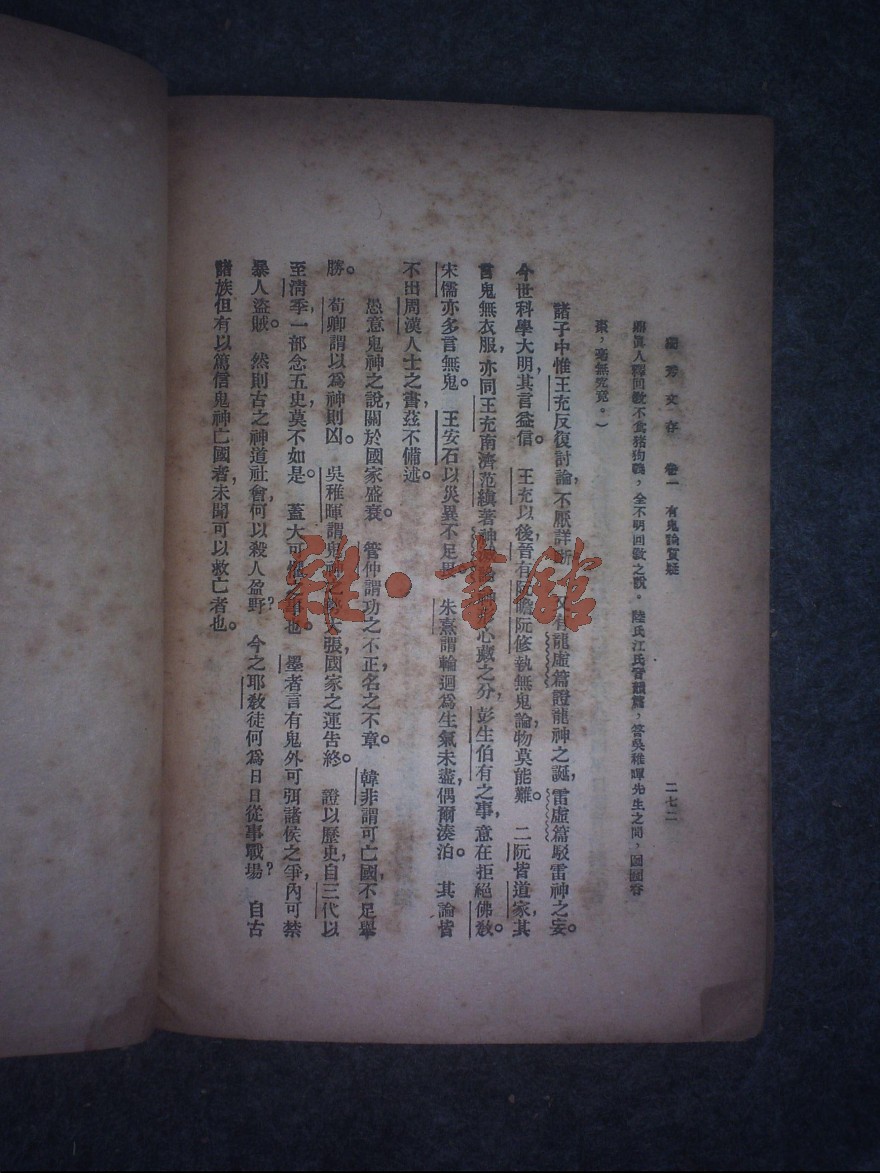 獨秀文存　卷一　有鬼論質疑
二七二
人釋回敎不食猪狗鴨,全不明回敎之說。陸氏江氏音韻篇,答吳稚暉先生之問,囫圇吞
棗,毫無究竟。)
諸子中惟王充反復討論,不厭詳晰,又有龍虛篇證龍神之誕,雷虛篇駁雷神之妄。
今世科學大明,其言益信。王充以後,晉有阮瞻阮修執無鬼論,物莫能難。二阮皆道家,其
言鬼無衣服,亦同王充。南濟范縝著神心藏之分,彭生伯有之事,意在拒絕佛敎。
宋儒亦多言無鬼。王安石以災異不足畏。朱熹謂輪迴爲生氣未盡,偶爾湊泊。其論皆
不出周漢人士之書,茲不備述。
愚意鬼神之說,關於國家盛衰。管仲謂功之不正,名之不章。韓非謂可亡國,不足舉
勝。荀卿謂以爲神則凶。吳稚暉謂鬼神之大張,國家之運告終。證以歷史,自三代以
至清季,一部念五史,莫不如是。蓋大可懼之事也。墨者言有鬼,外可弭諸侯之爭,內可禁
暴人盜賊。然則古之神道社會,何以殺人盈野?今之耶敎徒何爲日日從事戰場?自古
諸族但有以篤信鬼神亡國者,未聞可以救亡者也。
雜·書館